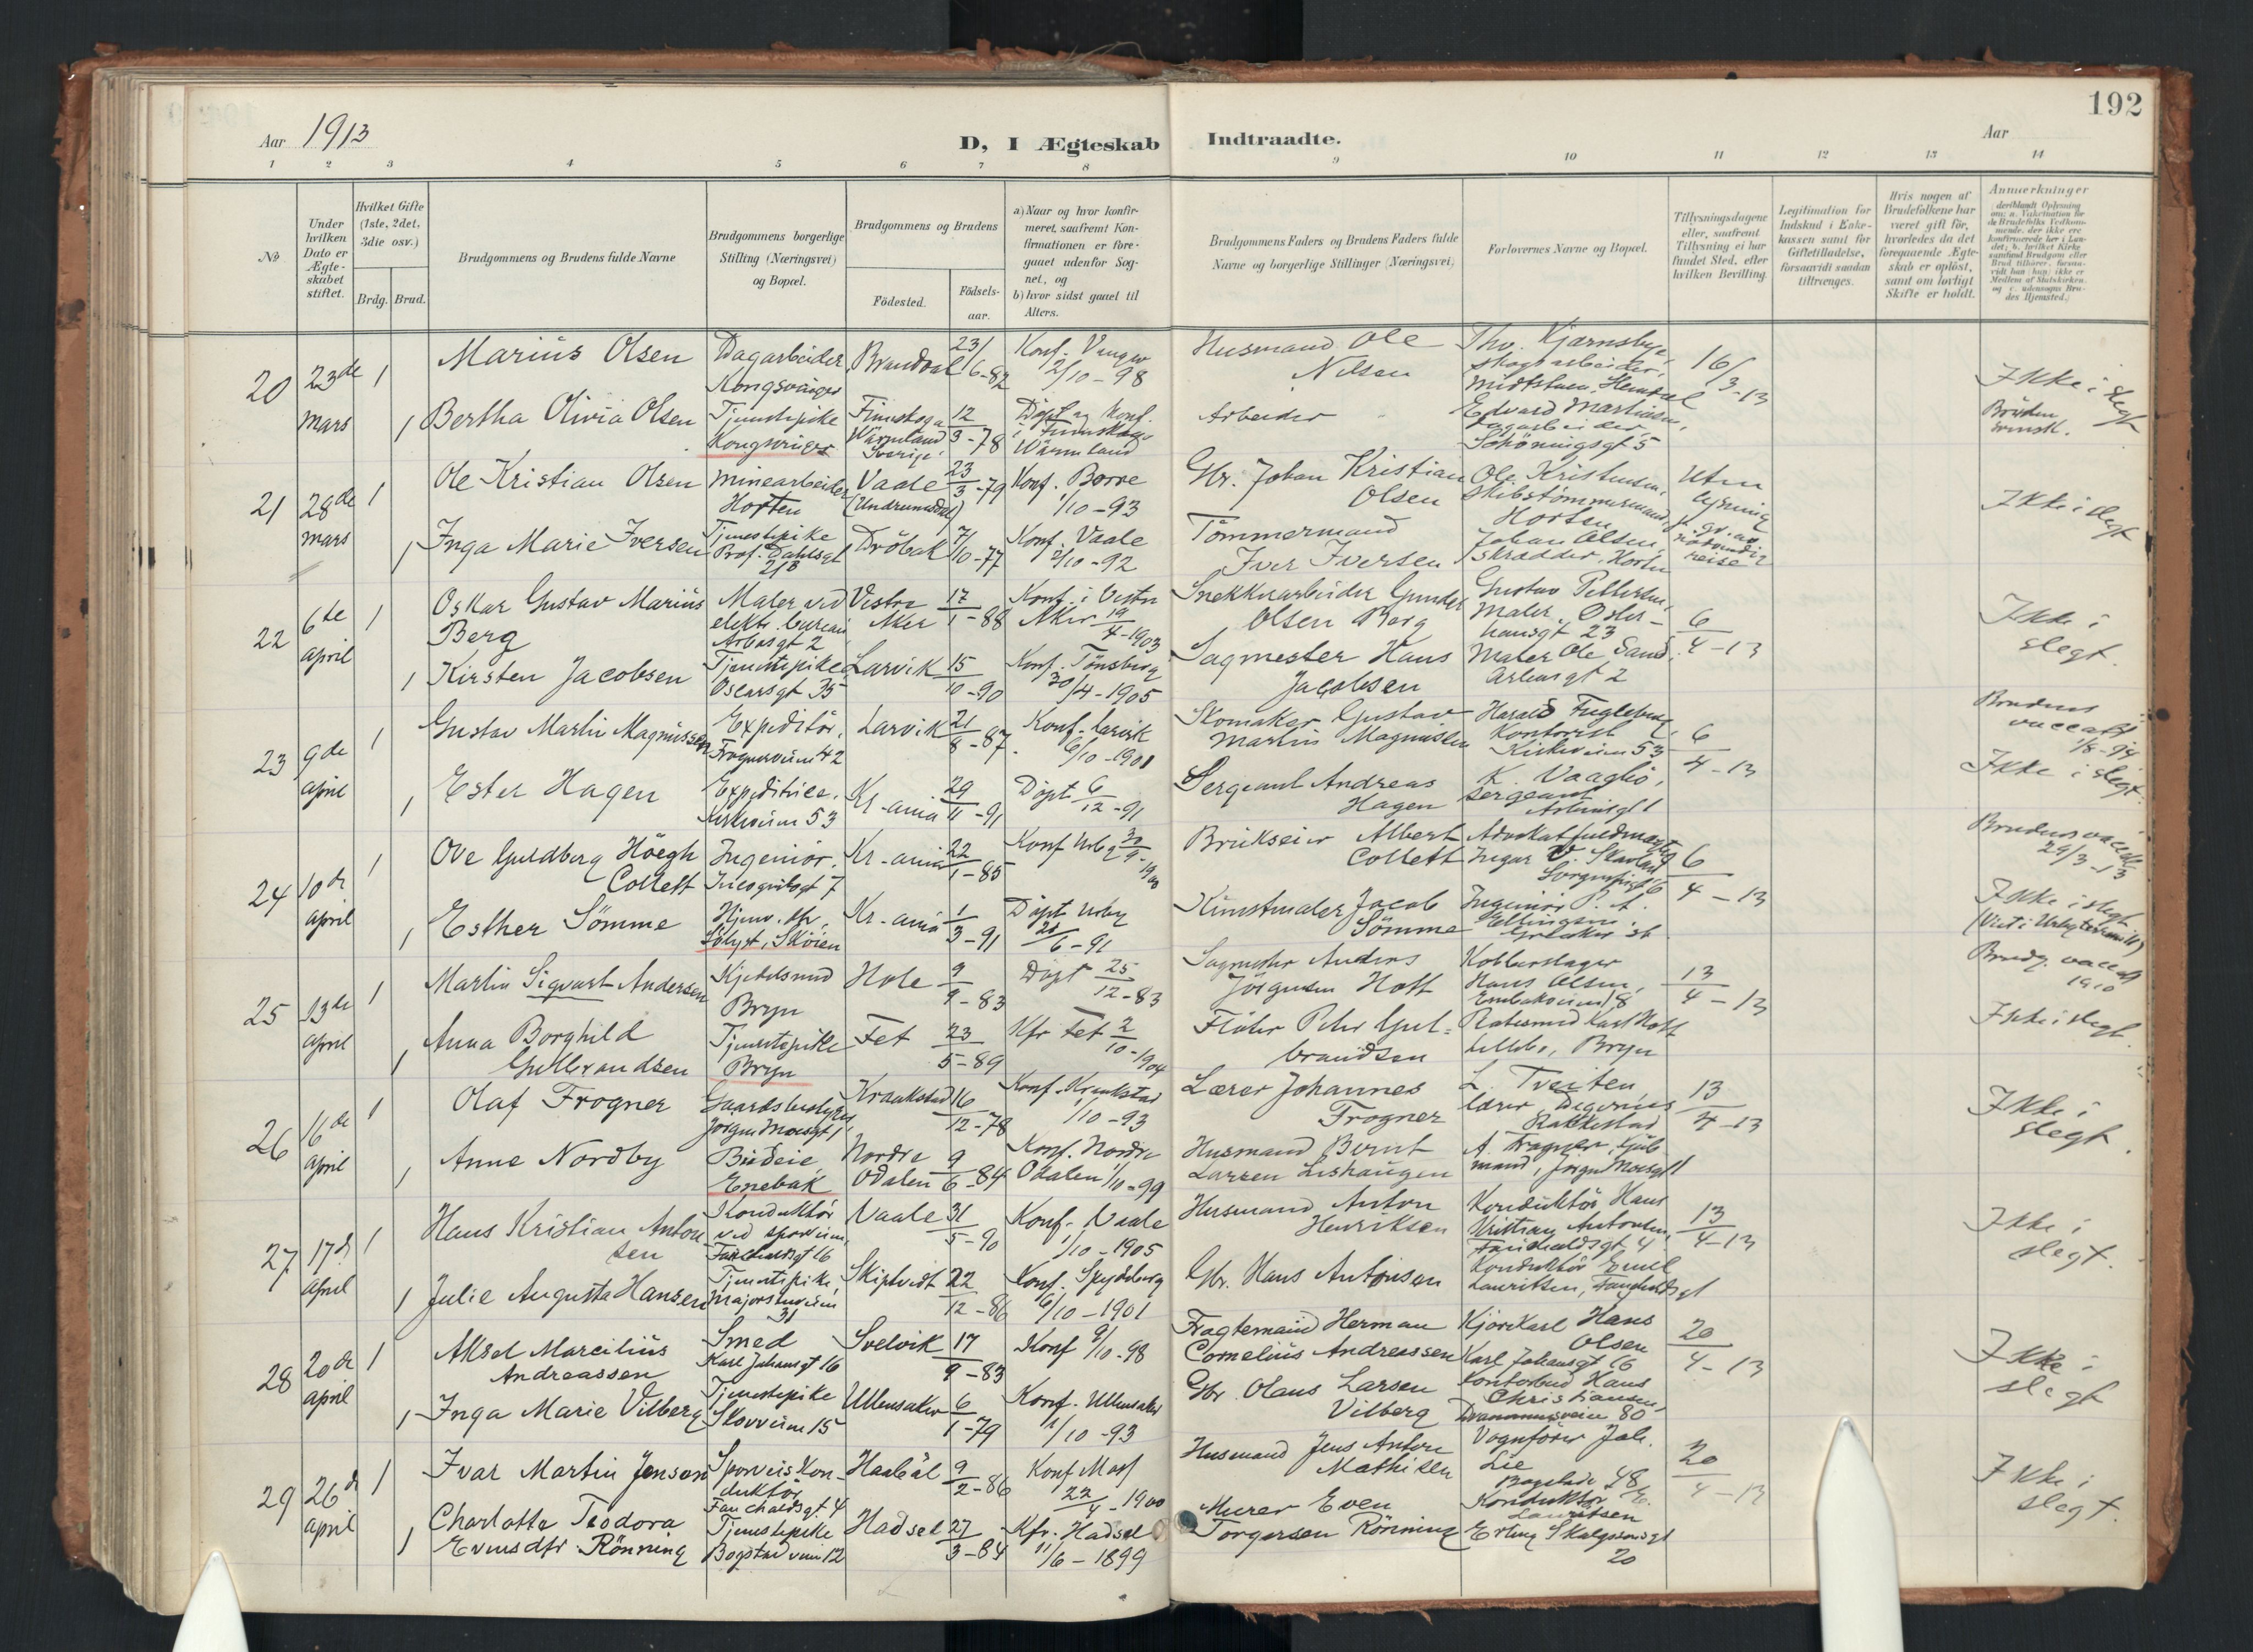 192
Aar 1913
D, I Ægteskab Indtraadte.
Aar
1 2 3 4 5 6 7 8 9 10 11 12 13 14
No
Under hvilken Dato er Ægteskabet stiftet.
Hvilket Gifte (1ste, 2det, 3die osv.)
Brdg. Brud.
Brudgommens og Brudens fulde Navne
Brudgommens borgerlige Stilling (Næringsvei) og Bopæl.
Brudgommens og Brudens
Födested.
Födselsaar.
a) Naar og hvor konfirmeret, saafremt Konfirmationen er foregaaet udenfor Sognet, og
b) hvor sidst gaaet til Alters.
Brudgommens Faders og Brudens Faders fulde Navne og borgerlige Stillinger (Næringsvei)
Forlovernes Navne og Bopæl.
Tillysningsdagene eller, saafremt Tillysning ei har fundet Sted, efter hvilken Bevilling.
Legitimation for Indskud i Enkekassen samt for Giftetilladelse, forsaavidt saadan tiltrænges.
Hvis nogen af Brudefolkene har været gift för, hvorledes da det foregaaende Ægteskab er oplöst, samt om lovligt Skifte er holdt.
Anmerkninger
20 23de mars
1 Marius Olsen
Dagarbeider Kongsvinger
Brandval 23/6-82
Konf. Vinger 2/10-98
Husmand Ole Nilsen
Tho. Kjærnsbye, skogsarbeider,
16/3-13
Ikke i slegt
Bruden svensk.
1 Bertha Olivia Olsen
Tjenestepike Kongsvinger
Finnskoga Wärmland Sverige 12/3-78
Döpt og konf. i Finnskoga Wärmland
Arbeider
Edvard Martinsen, dagarbeider, Schöningsgt 5
21 28de mars
1 Ole Kristian Olsen
Minearbeider Horten
Vaale (Undrumsdal) 23/3-79
Konf. Borre 1/10-93
Gbr. Johan Kristian Olsen
Ole Kristensen, skibstömmermand, Horten
Uten lysning p. gr. av nödvendig reise
Ikke i slegt
1 Inga Marie Iversen
Tjenestepike Prof. Dahlsgt
Dröbak 7/10-77
Konf. Vaale 2/10-92
Tömmermand Iver Iversen
Johan Olsen, skrædder, Horten
22 6te april
1 Oskar Gustav Marius Berg
Maler ved elektr. bureau Arbosgt 2
Vestre Aker 17/1-88
Konf. i Vestre Aker 19/4-1903
Snekkerarbeider Gunder Olsen Berg
Gustav Pettersen, Maler, Osterhausgt 23
6/4-13
Ikke i slegt.
1 Kirsten Jacobsen
Tjenestepike Oscarsgt 35
Larvik 15/10-90
Konf. Tönsberg 30/4-1905
Sagmester Hans Jacobsen
Maler Ole Sand, Arbosgt 2
23 9de april
1 Gustav Martin Magnussen
Expeditör, Frognerveien 42
Larvik 21/8-87.
Konf. Larvik 6/10-1901
Skomaker Gustav Martin Magnussen
Harald Fugleberg, Kontorist Kirkeveien 53
6/4-13
Brudens vaccatt 1/8-94
Ikke i slegt.
1 Ester Hagen
Expeditrice, Kirkeveien 53
Kr-ania 29/11-91
Döpt 6/12-91
Sergeant Andreas Hagen
K. Vaagbö, sergeant
24 10de april
1 Ove Guldberg Höegh Collett
Ingeniör, Incognitogt 7
Kr-ania 22/1-85
Konf Urbg 30/9-1900
Brukseier Albert Collett
Advokatfuldmægtig
6/4-13
Brudens vaccatt 29/3-13
Ikke i slegt
1 Esther Sömme
Hjemv. dtr, Sölyst, Sköien
Kr-ania 1/3-91
Döpt Urbg 21/6-91
Kunstmaler Jacob Sömme
Ingeniör P. A. Ellingsen,
25 13de april
1 Martin Sigvart Andersen
Kjedelsmed Bryn
Hole 9/9-83
Döpt 25/12-83
Sagmester Anders Jörgensen Hoff
Kobberslager Hans Olsen,
13/4-13
Brudg. vaccatt 1910
Ikke i slegt.
1 Anna Borghild Gulbrandsen
Tjenestepike Bryn
Fet 23/5-89
Kfr Fet 2/10-1904
Flöter Peter Gulbrandsen
Bryn
26 16de april
1 Olaf Frogner
Gaardsbestyrer Jörgen Moesgt 1
Kraakstad 16/12-78
Konf. Kraakstad 1/10-93
Lærer Johannes Frogner
L. Tveiten lærer Degernes Rakkestad
13/4-13
Ikke i slegt.
1 Anne Nordby
Budeie, Enebak
Nordre Odalen 9/6-84
Konf. Nordre Odalen 1/10-99
Husmand Bernt Larsen Lishaugen
A. Frogner, kjöbmand, Jörgen Moesgt 1
27 17de april
1 Hans Kristian Antonsen
Konduktör ved sporveien, Fauchaldsgt 16
Vaale 31/5-90
Konf. Vaale 1/10-1905
Husmand Anton Henriksen
Konduktör Hans Kristian Antonsen, Fauchaldsgt 4
13/4-13
Ikke i slegt.
1 Julie Augusta Hansen
Tjenestepike, Majorstuveien 31
Skiptvedt 22/12-86
Konf. Spydeberg 6/10-1901
Gbr. Hans Antonsen
Konduktör Emil Lauritsen, Fauchaldsgt
28 20de april
1 Aksel Marcilius Andreassen
Smed Karl Johansgt 16
Svelvik 17/9-83
Konf 9/10-98
Fragtemand Herman Cornelius Andreassen
Kjörekarl Hans Olsen Karl Johansgt 16
20/4-13
Ikke i slegt
1 Inga Marie Vilberg
Tjenestepike Skovveien 15
Ullensaker 6/1-79
Konf. Ullensaker 1/10-93
Gbr. Olaus Larsen Vilberg
Kontorbud Hans Christiansen, Drammensveien 80
29 26de april
1 Ivar Martin Jensen
Sporveiskonduktör Fauchaldsgt. 4
Haaböl 9/2-86
Konf Moss 22/4-1900
Husmand Jens Anton Mathisen
Vognförer Joh. Lie
20/4-13
Ikke i slegt.
1 Charlotte Teodora Evensdtr. Rönning
Tjenestepike Bogstadveien 12
Hadsel 27/3-84
Kfr. Hadsel 11/6-1899
Murer Even Torgersen Rönning
Konduktör E. Lauritsen Erling Skalgssonsgt 20